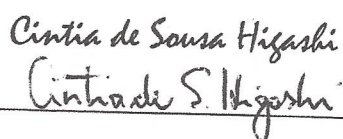 Cintia de Sousa Higashi
Cintia de S. Higashi